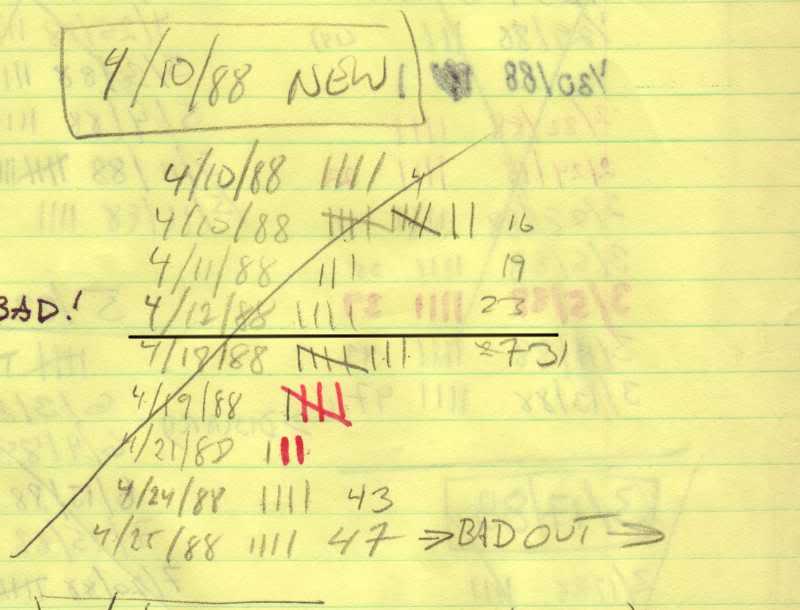 4/10/88 NEW!
4/10/88 |||| 4
4/10/88 |||| |||| || 16
4/11/88 ||| 19
BAD! 4/12/88 |||| 23
4/18/88 |||| ||| 31
4/19/88 ||||
4/21/88 |||
4/24/88 |||| 43
4/25/88 |||| 47 → BAD OUT →